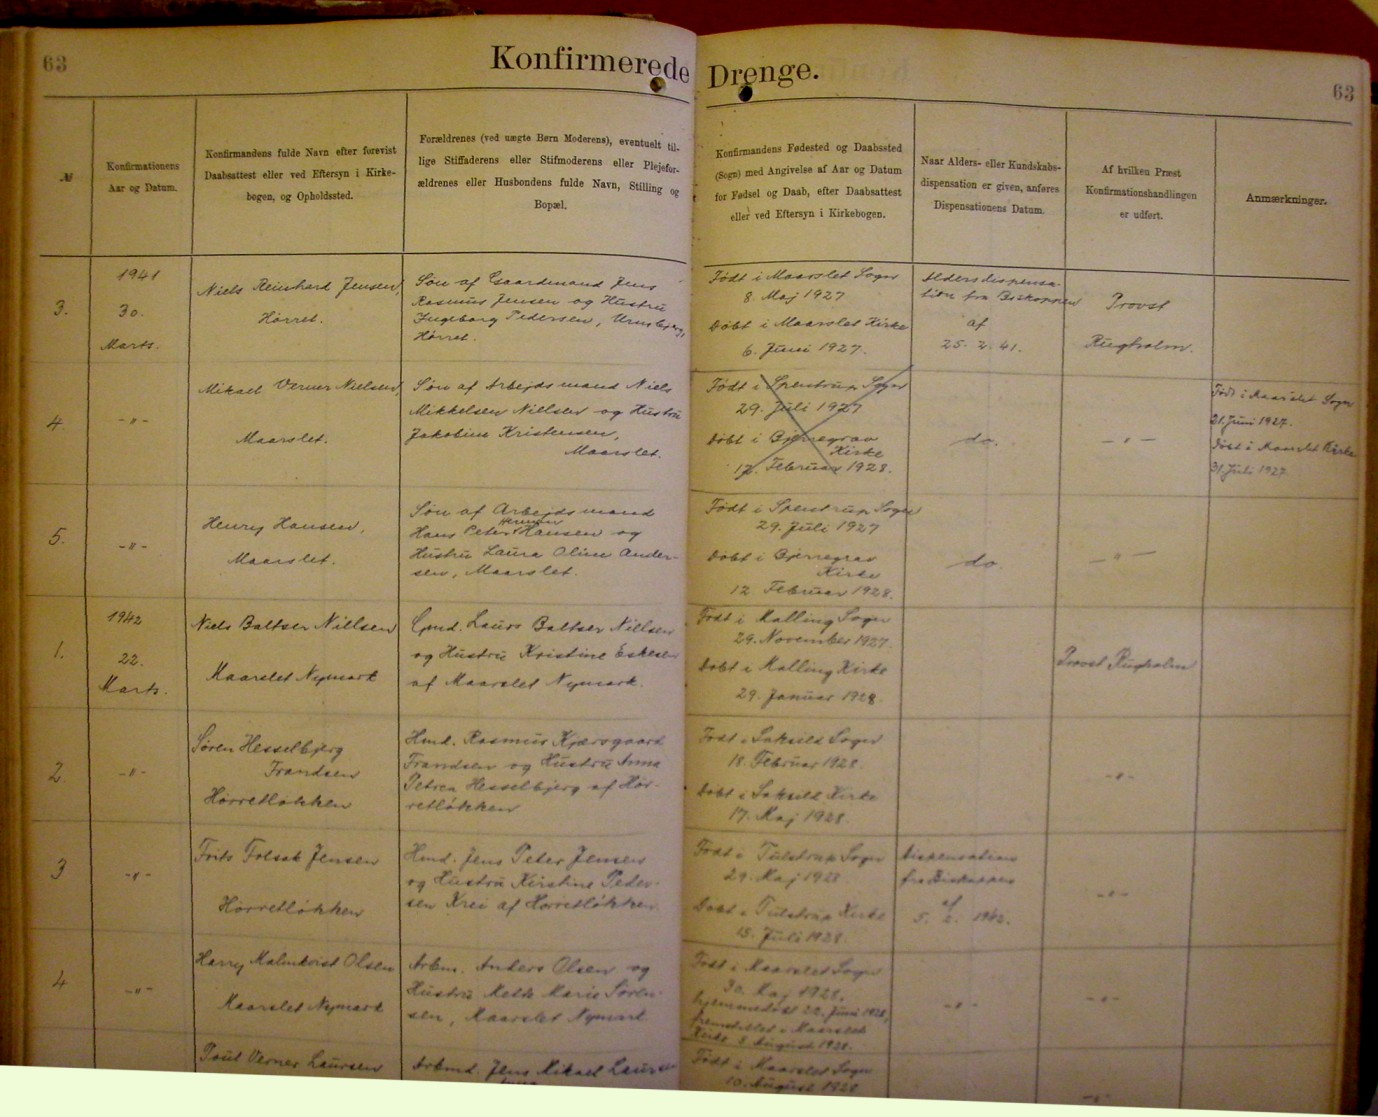 63
Konfirmerede Drenge.
63
№
Konfirmationens
Aar og Datum.
Konfirmandens fulde Navn efter forevist
Daabsattest eller ved Eftersyn i Kirke-
bogen, og Opholdssted.
Forældrenes (ved uægte Børn Moderens), eventuelt til-
lige Stiffaderens eller Stifmoderens eller Plejefor-
ældrenes eller Husbondens fulde Navn, Stilling og
Bopæl.
Konfirmandens Fødested og Daabssted
(Sogn) med Angivelse af Aar og Datum
for Fødsel og Daab, efter Daabsattest
eller ved Eftersyn i Kirkebogen.
Naar Alders- eller Kundskabs-
dispensation er given, anføres
Dispensationens Datum.
Af hvilken Præst
Konfirmationshandlingen
er udført.
Anmærkninger.
3.
1941
30.
Marts.
Niels Reinhard Jensen,
Hørret.
Søn af Gaardmand Jens
Rasmus Jensen og Hustru
Ingeborg Pedersen,
Hørret.
Født i Maarslet Sogn
8. Maj 1927
Døbt i Maarslet Kirke
6. Juni 1927.
Aldersdispensa-
tion fra Biskoppen
af
25. 2. 41.
Provst
Rugholm.
4.
-"-
Mikael Verner Nielsen,
Maarslet.
Søn af Arbejdsmand Niels
Mikkelsen Nielsen og Hustru
Jakobine Kristensen,
Maarslet.
Født i Spentrup Sogn
29. Juli 1927
Døbt i Bjerregrav
Kirke
12. Februar 1928.
do.
-"-
Født i Maarslet Sogn
21. Juni 1927.
Døbt i Maarslet Kirke
31. Juli 1927
5.
-"-
Henry Hansen,
Maarslet.
Søn af Arbejdsmand
Hans Peter Herman Hansen og
Hustru Laura Oline Ander-
sen, Maarslet.
Født i Spentrup Sogn
29. Juli 1927
Døbt i Bjerregrav
Kirke
12. Februar 1928.
do.
-"-
1.
1942
22.
Marts.
Niels Baltser Nielsen
Maarslet Nymark
Gmd. Laurs Baltser Nielsen
og Hustru Kristine Eskesen
af Maarslet Nymark.
Født i Malling Sogn
29. November 1927.
Døbt i Malling Kirke
29. Januar 1928.
Provst Rugholm
2.
-"-
Søren Hesselbjerg
Frandsen
Hørretløkken
Hmd. Rasmus Kjærsgaard
Frandsen og Hustru Anna
Petrea Hesselbjerg af Hør-
retløkken
Født i Saksild Sogn
18. Februar 1928.
Døbt i Saksild Kirke
17. Maj 1928.
-"-
3
-"-
Frits Jensen
Hørretløkken
Hmd. Jens Peter Jensen
og Hustru Kirstine Peder-
sen Krei af Hørretløkken.
Født i Tulstrup Sogn
29. Maj 1928.
Døbt i Tulstrup Kirke
15. Juli 1928.
Dispensation
fra Biskoppen
af
5. 2. 1942.
-"-
4
-"-
Harry Malmkvist Olsen
Maarslet Nymark
Arbm. Anders Olsen og
Hustru Marie Søren-
sen, Maarslet Nymark
Født i Maarslet Sogn
30. Maj 1928,
hjemmedøbt 22. Juni 1928,
fremstillet i Maarslet
Kirke 5. August 1928.
-"-
-"-
Poul Verner Laursen
Arbmd. Jens Mikael Laursen
Født i Maarslet Sogn
10. August 1928
-"-